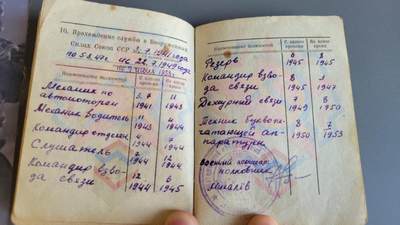 10. Прохождение службы в Вооруженных
Силах Союза ССР с 2.7.1941 года
по 5.8.47г. и с 22.7.1949 года
по 9 июля 1953г.
Наименование должностей
С какого времени
По какое время
Механик по
автомоторам
7 1941
11 1943
Механик водитель
11 1943
4 1944
Командир отделен.
4 1944
7 1944
Слушатель
7 1944
12 1944
Командир взво-
да связи
12 1944
6 1945
Наименование должностей
С какого времени
По какое время
Резерв
6 1945
8 1945
Командир взво-
да связи
8 1945
8 1947
Дежурный связи
1949
1950
Техник буквопе-
чатающей ап-
паратуры
8 1950
7 1953
Военный комиссар
полковник